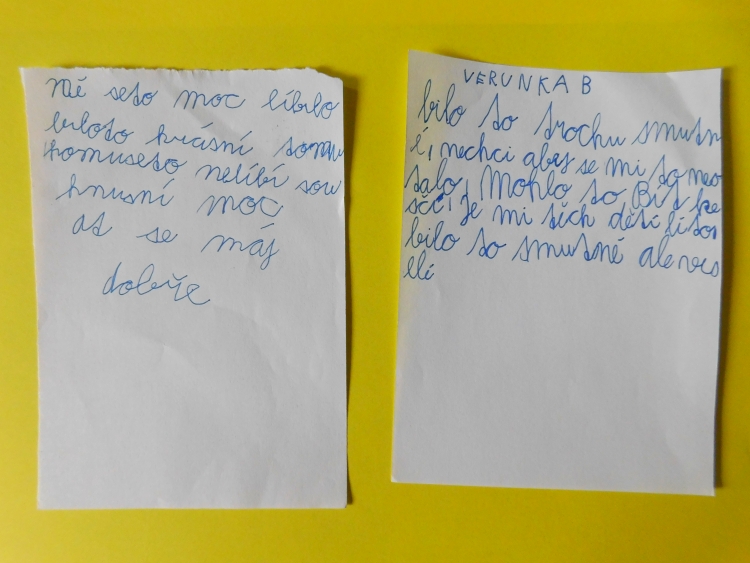 mě seto moc líbilo
biloto krásní tomu
komuseto nelíbí sou
hnusní moc
at se máj
dobře
VERUNKA B
bilo to trochu smutn
é, nechci aby se mi to neo
talo, Mohlo to Bít he
sčí, je mi tích dětí líto
bilo to smutné ale ves
elí